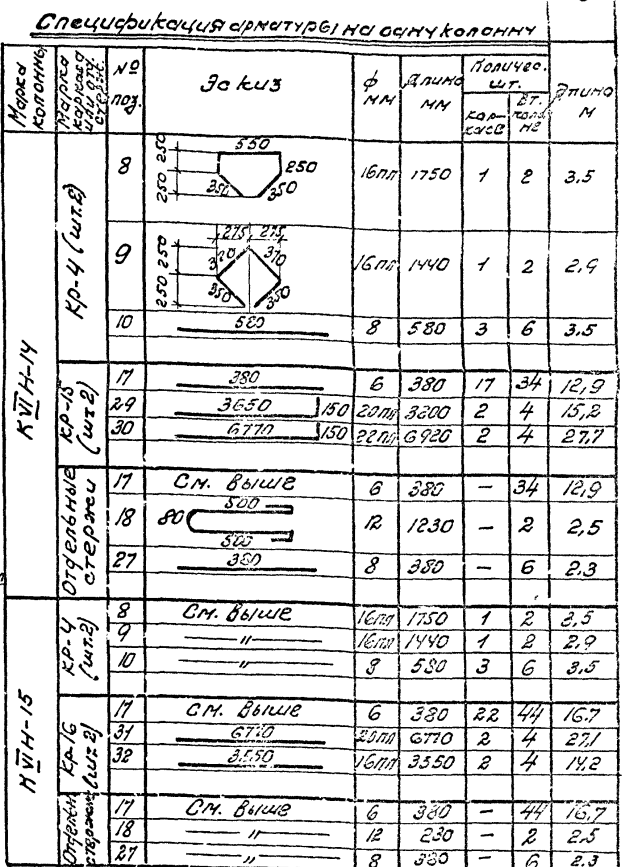 Спецификация арматуры на одну колонну
Марка колонны Марка каркаса или отд. стержн. № поз. Эскиз ф мм Длина мм Количес. шт. Длина м
каркаса Вт. колонне
КVIН-14
КР-4 (шт.2)
8 550 250 250 250 350 350 16пл 1750 1 2 3,5
9 275 275 250 250 370 370 350 350 16пл 1440 1 2 2,9
10 580 8 580 3 6 3,5
КР-15 (шт 2)
17 380 6 380 17 34 12,9
29 3650 150 20пл 3800 2 4 15,2
30 6770 150 22пл 6920 2 4 27,7
Отдельные стержни
17 См. выше 6 380 — 34 12,9
18 80 500 500 12 1230 — 2 2,5
27 380 8 380 — 6 2,3
КVIН-15
КР-4 (шт.2)
8 См. выше 16пл 1750 1 2 3,5
9 —"— 16пл 1440 1 2 2,9
10 —"— 8 580 3 6 3,5
КР-16 (шт 2)
17 См. выше 6 380 22 44 16.7
31 6770 20пл 6770 2 4 27,1
32 3550 16пл 3550 2 4 14,2
Отдельн стержни
17 См. выше 6 380 — 44 16,7
18 —"— 12 230 — 2 2,5
27 —"— 8 380 — 6 2,3